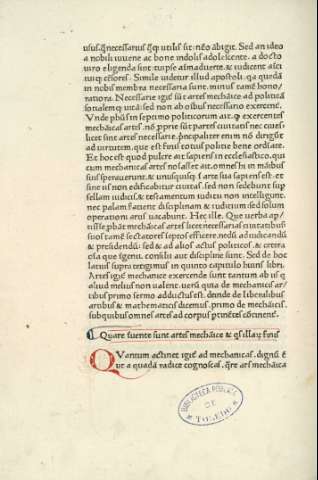 usus. q̃ necessarius q̃ɜ utilis sit: nẽo ãbigit. Sed an ideo
a nobili iuuene ac bone indolis adolescente. a docto
uiro eligenda sint: turpe
Simile uidetur illud apostoli. qa quedã
in nobis membra necessaria sunt. minus tamẽ hono/
ratiora. Necessarie igit̃ sũt artes mechãice ad politicã
sotialemqɜ uitã: sed non ab oĩbus necessario exercent̃.
Vnde phũs in septimo politicorum ait. exercentes
mechãicas artes. nõ pprie sũt partes ciuitatis nec ciues:
licet sint artes necessarie.
ad uirtutem. que est finis totius politie bene ordiate.
Et hoc est quod pulcre ait sapiens in ecclesiastico. qui
cum mechanicas artes ait. omnes hi in mãibus
suis sperauerunt. & unusquisqɜ ĩ arte sua sapiens est. et
sine iis non edificabitur ciuitas. sed non sedebunt sup
sellam iudicis: & testamentum iudicii non intelligunt.
nec palam facient disciplinam & iudicium sed solum
operationi artis uacabunt. Hec ille. Que uerba ap/
tissime pbãt mechãicas artes licet necessarias ciuitatibus
suos tamẽ sectatores ĩeptos efficere. nedũ ad iudicandũ
& presidendũ: sed & ad alios actus politicos. & cetera
Sed de hoc
latius supra tetigimus in quinto capitulo huius libri.
Artes igit̃ mechanice exercende sunt tantum ab iis q̃
aliud melius non ualent. uerũ quia de mechanicis ar/
tibus primo sermo adductus est. deinde de liberalibus
artibus & mathematicis dicemus. primo de mechãicis.
sub quibus omnes artes ad corpus ptinẽtes cõtinent̃.
Quare inuente sunt artes mechãice & q̃ sit illarũ finis
QVantum attinet igit̃ ad mechanicas. dignũ ẽ
ut a quadã radice cognoscas. q̃re ars mechãica
BIBLIOTECA PUBLICA
DE
TOLEDO